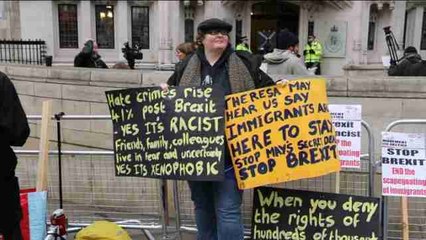 Hate crimes rise
41% post Brexit
- YES ITS RACIST
Friends, family, colleagues
live in fear and uncertainty
YES ITS XENOPHOBIC
THERESA MAY
HEAR US SAY
IMMIGRANTS ARE
HERE TO STAY
STOP MAY'S
STOP BREXIT
When you deny
the rights of
hundreds of
racist
STOP
BREXIT
End the
scapegoating
of